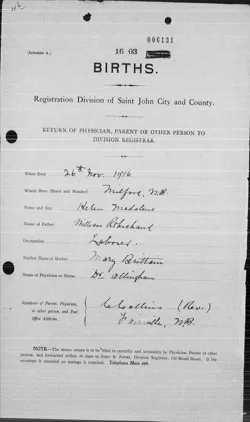 006131
(Schedule A.)
16 03
BIRTHS.
Registration Division of Saint John City and County.
RETURN OF PHYSICIAN, PARENT OR OTHER PERSON TO
DIVISION REGISTRAR.
When Born 26th Nov. 1916
Where Born (Street and Number) Milford, N.B.
Name and Sex Helen Madeline
Name of Father William Robichaud
Occupation Laborer
Maiden Name of Mother Mary Brittain
Name of Physician or Nurse Dr Allingham
Signature of Parent, Physician,
or other person, and Post
Office Address. Collins (Rev.)
Fairville, N.B.
NOTE.—The above return is to be filled in carefully and accurately by Physician, Parent or other
person, and forwarded within 30 days to John B. Jones, Division Registrar, 162 Broad Street. If the
envelope is mailed no postage is required. Telephone Main